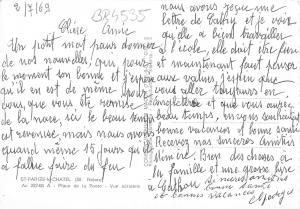 2/7/69
BR4535
Chère Anne
Un petit mot pour donner
de nos nouvelles, qui pour
le moment son bonne et j'espère
qu'il en est de même pour
vous, que vous être remise
de la noce, ici le beau temps
est revenue, mais nous avons
quand même 15 jours qu'il
a fallut faire du feu
ST-PARIZE-le-CHATEL (58 Nièvre)
Place de la Poste - Vue aérienne
nous avons reçue une
lettre de Cathy et je vois
qu'elle a bien travailler
à l'école, elle doit être fière
et maintenant faut penser
aux valises, j'espère que
vous allez toujours en
Angleterre et que vous aurez
beau temps, en vous souhaitant
bonne vacances et bonne santé
Recevez nos Sincères Amitiés
Bien des choses à
la famille et une grosse bise
à Cathy
et bonnes vacances